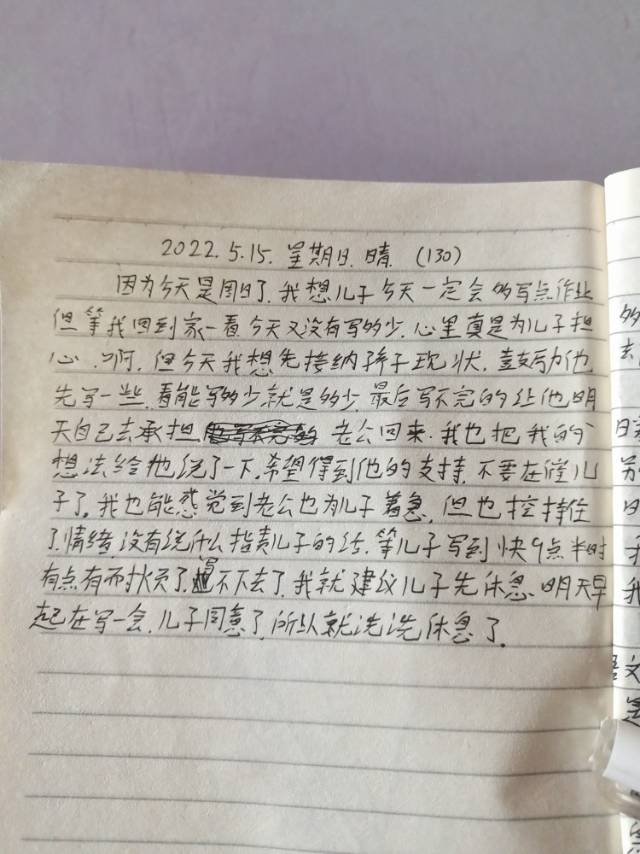 2022.5.15.星期日.晴.(130)
因为今天是周日了.我想儿子今天一定会多写点作业
但等我回到家一看今天又没有写多少.心里真是为儿子担
心.啊.但今天我想先接纳孩子现状.鼓励他
先写一些.看能写多少就是多少.最后写不完的让他明
天自己去承担 老公回来.我也把我的
想法给他说了一下.希望得到他的支持.不要在催儿
子了.我也能感觉到老公也为儿子着急.但也控制住
了情绪没有说什么指责儿子的话.等儿子写到快9点半时
有点不下去了.我就建议儿子先休息.明天早
起在写一会.儿子同意了.所以就洗洗休息了.
的
去
日
另
日
我
语文
是